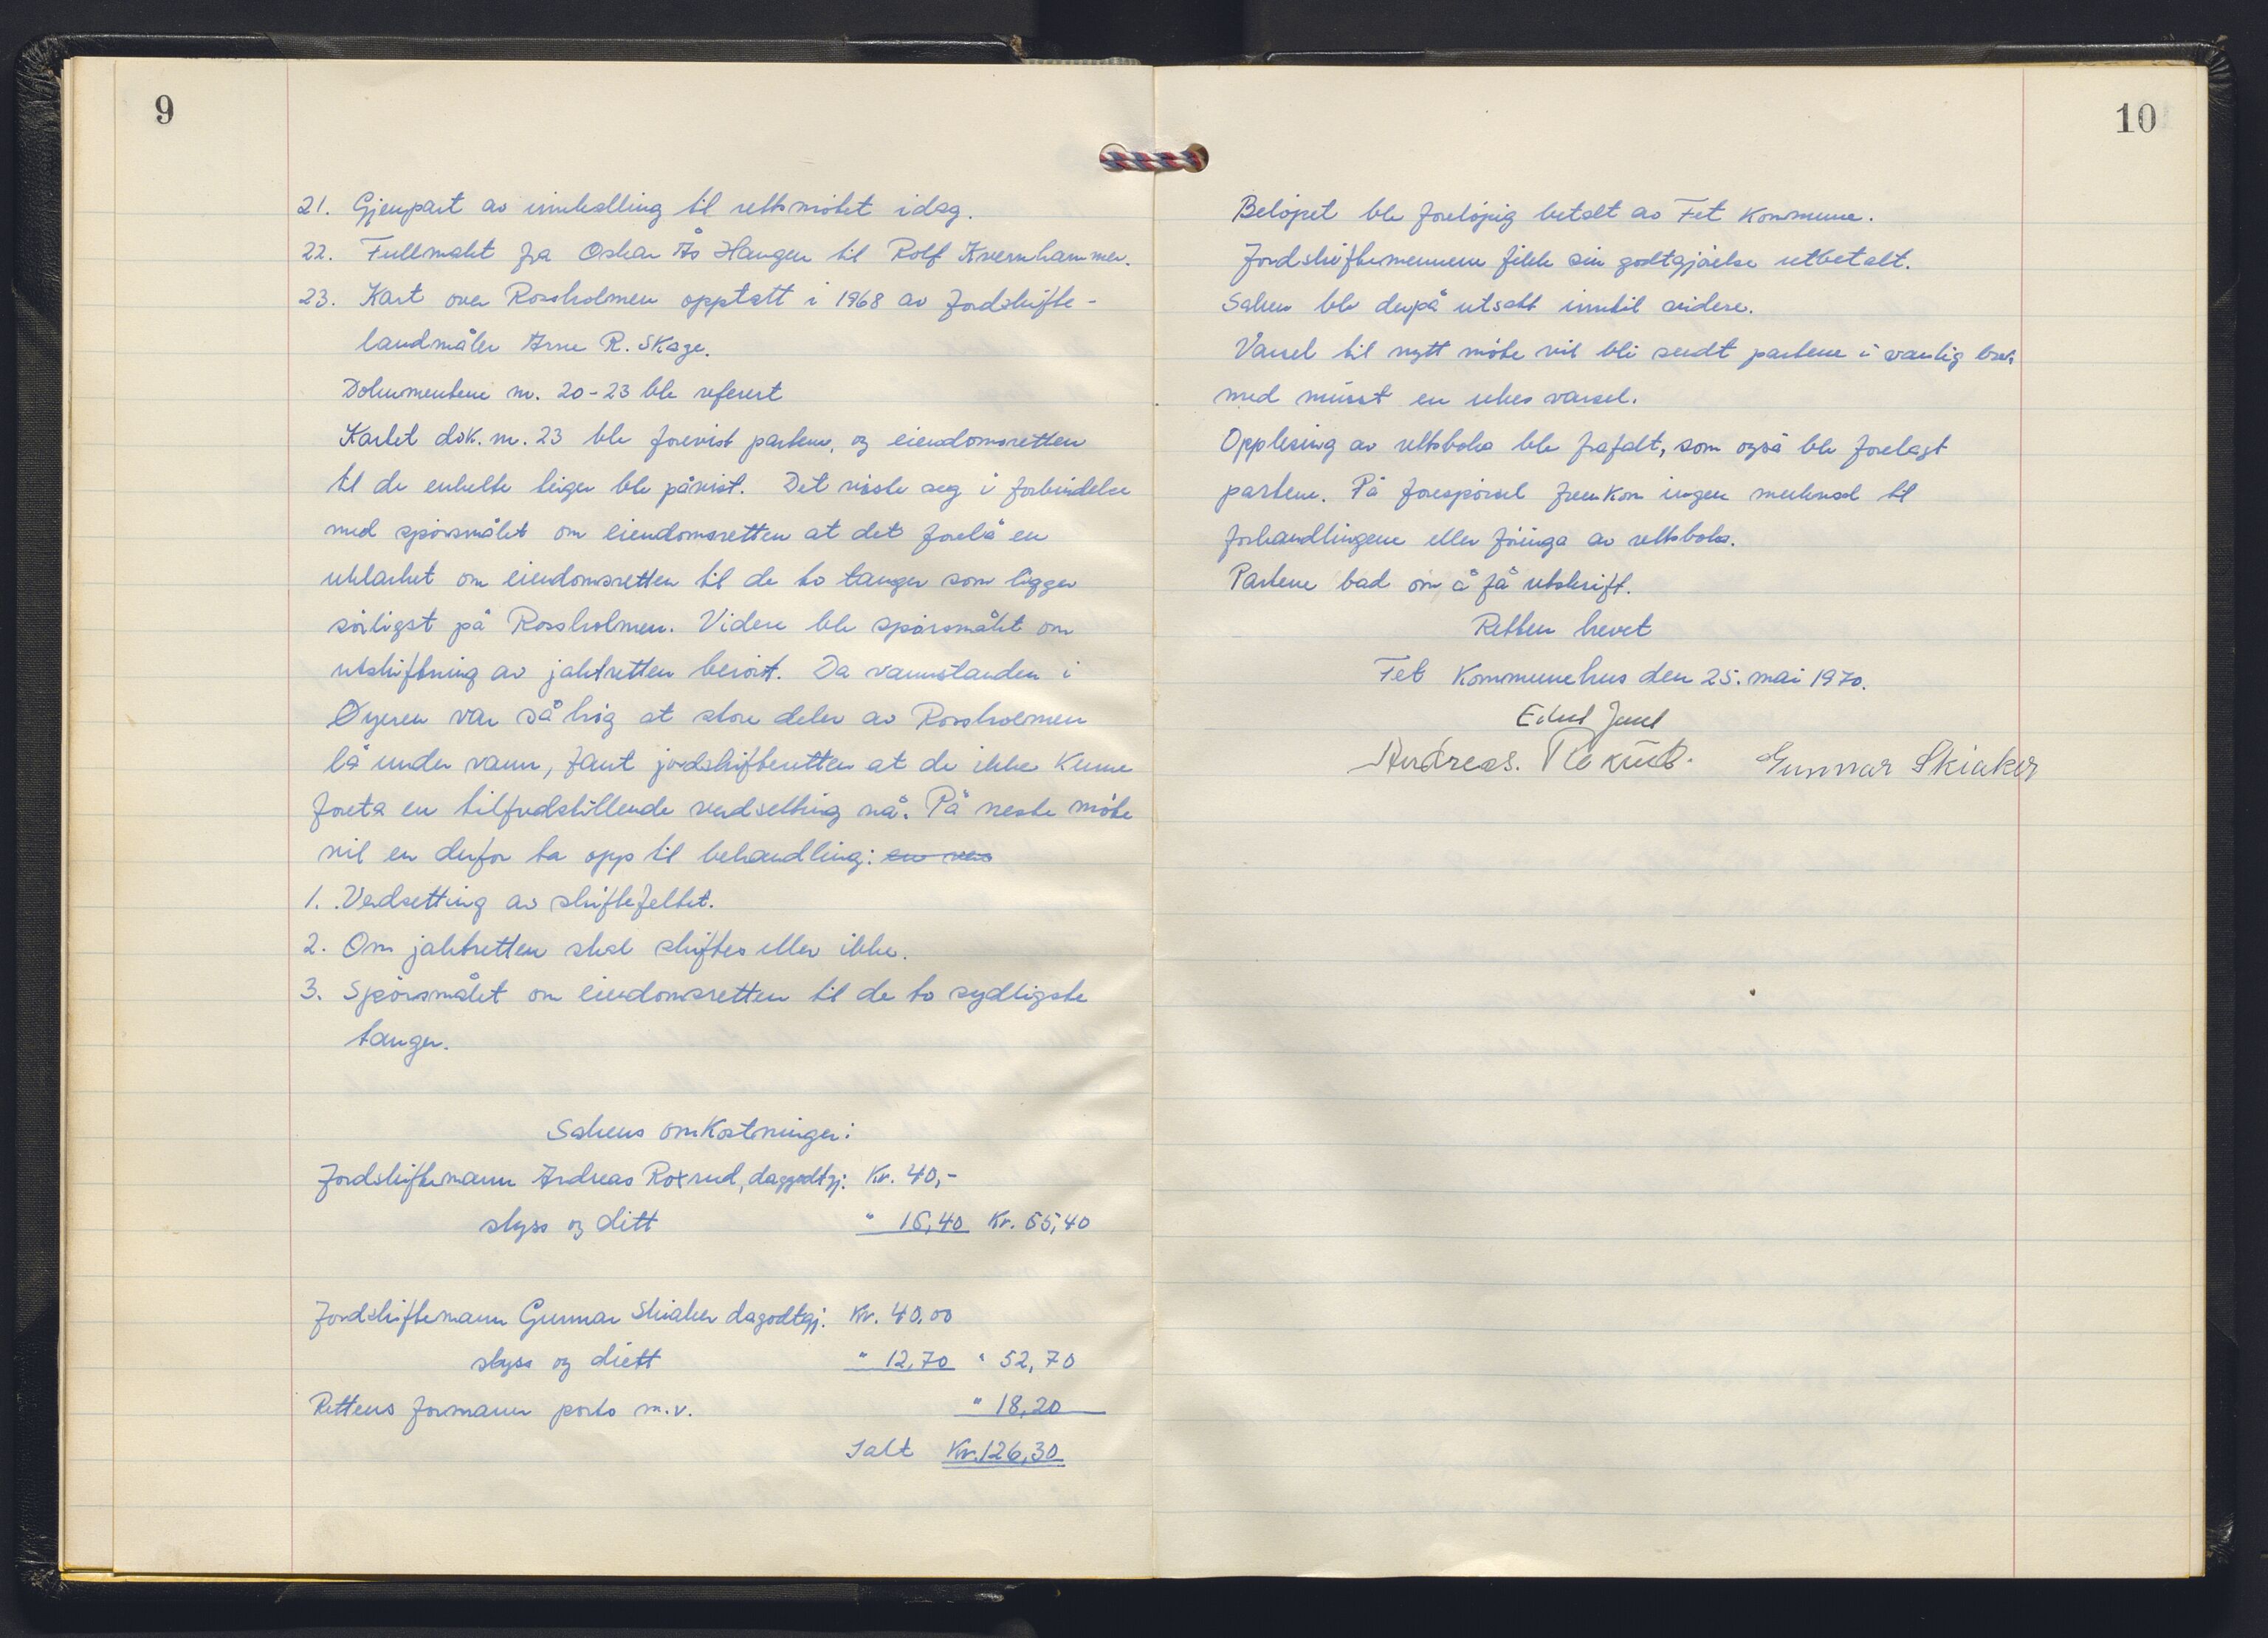 9
21. Gjenpart av innkalling til rettsmötet idag.
22. Fullmakt fra Oskar Ås Haugen til Rolf Kvernhammer.
23. Kart over Rossholmen opptatt i 1968 av jordskifte-
landmåler Arne R. Skage.
Dokumentene nr. 20-23 ble referert
Kartet dok. nr. 23 ble forevist partene, og eiendomsretten
til de enkelte teiger ble påvist. Det viste seg i forbindelse
med spörsmålet om eiendomsretten at det forelå en
uklarhet om eiendomsretten til de to tanger som ligger
sörligst på Rossholmen. Videre ble spörsmålet om
utskiftning av jaktretten berört. Da vannstanden i
Öyeren var så hög at store deler av Rossholmen
lå under vann, fant jordskifteretten at de ikke kunne
foreta en tilfredstillende verdsetting nå. På neste möte
vil en derfor ta opp til behandling: en ves
1. Verdsetting av skiftefeltet.
2. Om jaktretten skal skiftes eller ikke.
3. Spörsmålet om eiendomsretten til de to sydligste
tanger.
Sakens omkostninger:
Jordskiftemann Andreas Roxrud, daggodtgj: Kr. 40,-
skyss og ditt " 15,40 Kr. 55,40
Jordskiftemann Gunnar Skiaker dagodtgj: Kr. 40,00
skyss og diett " 12,70 " 52,70
Rettens formann porto m.v. " 18,20
Ialt Kr. 126,30
10
Belöpet ble forelöpig betalt av Fet Kommune.
Jordskiftemennene fikk sin godtgjörelse utbetalt.
Saken ble derpå utsatt inntil videre.
Varsel til nytt möte vil bli sendt partene i vanlig brev
med minst en ukes varsel.
Opplesing av rettsboka ble frafalt, som også ble forelagt
partene. På forespörsel fremkom ingen merknad til
forhandlingene eller föringa av rettsboka.
Partene bad om å få utskrift.
Retten hevet
Fet Kommunehus den 25. mai 1970.
Andreas. Roxrud. Gunnar Skiaker